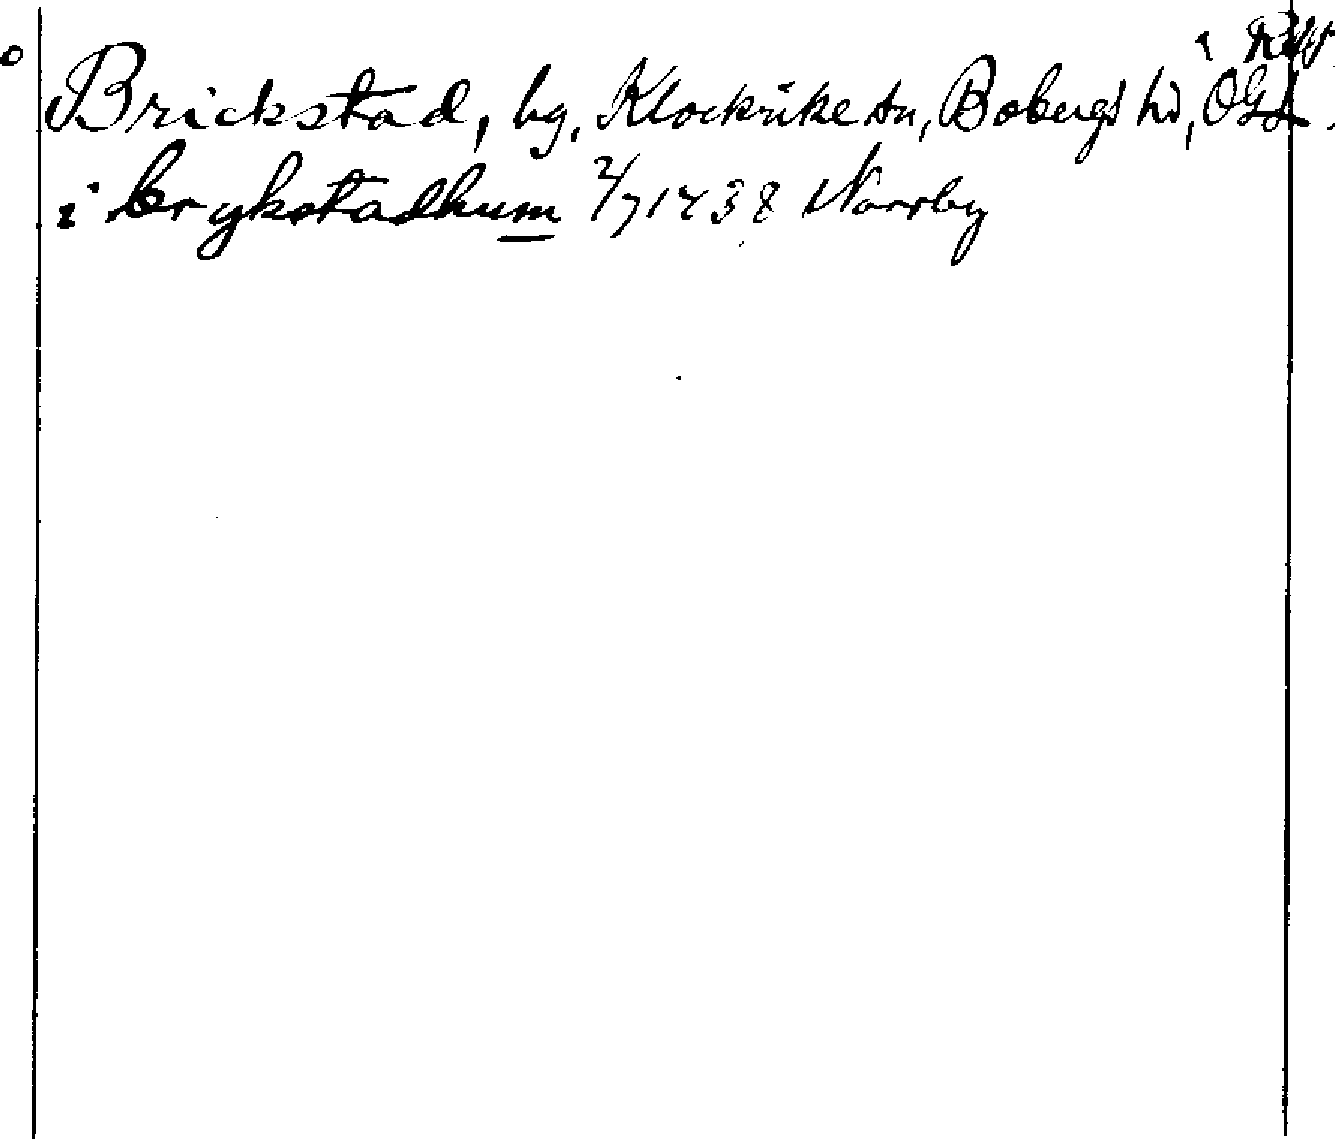 Brickstad, by, Klockrike sn, Bobergs hd, ÖGL.
i brykstadhum 2/7 1438 Norrby